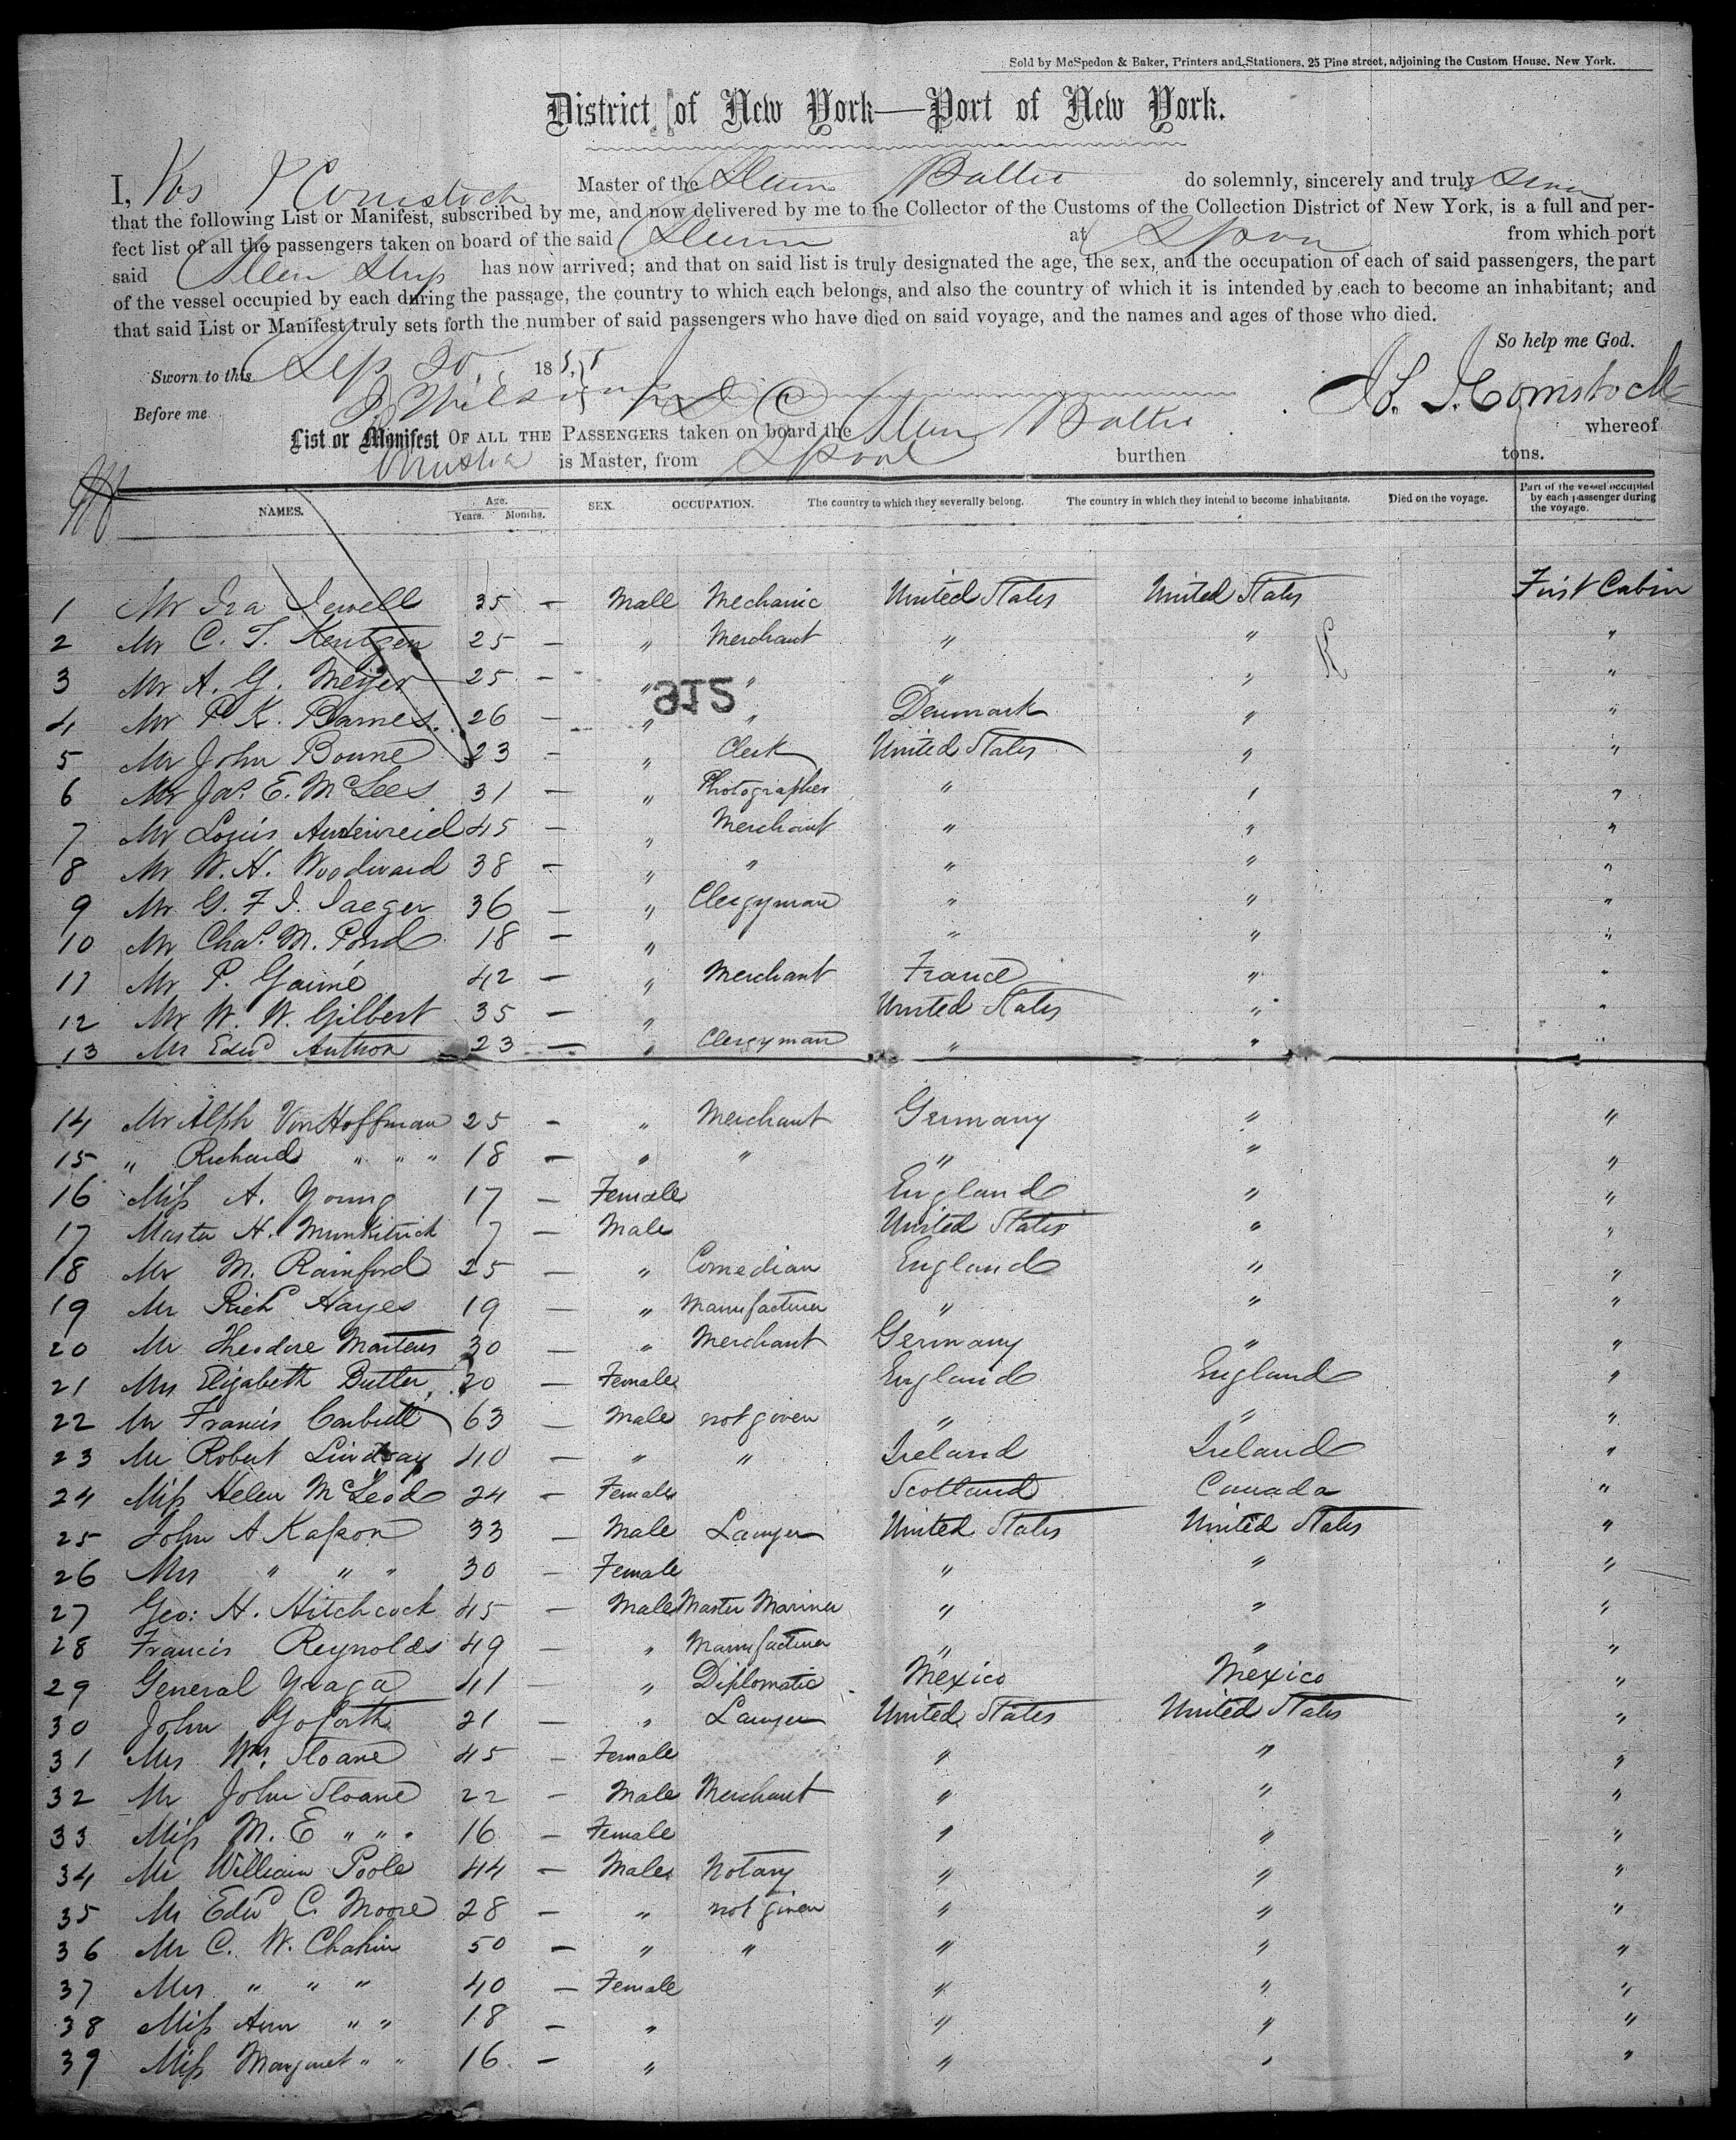 Sold by McSpedon & Baker, Printers and Stationers, 25 Pine street, adjoining the Custom House, New York.
District of New York—Port of New York.
I, Jos J Comstock Master of the Steam Baltic do solemnly, sincerely and truly swear
that the following List or Manifest, subscribed by me, and now delivered by me to the Collector of the Customs of the Collection District of New York, is a full and per-
fect list of all the passengers taken on board of the said Steam at Lpool from which port
said Steam Ship has now arrived; and that on said list is truly designated the age, the sex, and the occupation of each of said passengers, the part
of the vessel occupied by each during the passage, the country to which each belongs, and also the country of which it is intended by each to become an inhabitant; and
that said List or Manifest truly sets forth the number of said passengers who have died on said voyage, and the names and ages of those who died.
So help me God.
Sworn to this Sep 20, 1855
J. J. Comstock
Before me
List or Manifest OF ALL THE PASSENGERS taken on board the Steam Baltic whereof
is Master, from Lpool burthen tons.
NAMES. Age. Years. Months. SEX. OCCUPATION. The country to which they severally belong. The country in which they intend to become inhabitants. Died on the voyage. Part of the vessel occupied by each passenger during the voyage.
1 Mr Ira Jewell 35 — Male Mechanic United States United States First Cabin
2 Mr C. T. Kentgen 25 — " Merchant " " "
3 Mr A. G. Meyer 25 — " " " " "
912
4 Mr P K. Barnes 26 — " " Denmark " "
5 Mr John Bourne 23 — " Clerk United States " "
6 Mr Jas. E. McLees 31 — " Photographer " " "
7 Mr Louis Audenreid 45 — " Merchant " " "
8 Mr W. H. Woodward 38 — " " " " "
9 Mr G. F. J. Jaeger 36 — " Clergyman " " "
10 Mr Chas. M. Pond 18 — " " " "
11 Mr P. Gaimé 42 — " Merchant France " "
12 Mr W. W. Gilbert 35 — " United States " "
13 Mr Edwd Anthon 23 — " Clergyman " " "
14 Mr Alph Von Hoffman 25 — " Merchant Germany " "
15 " Richard " " " 18 — " " " " "
16 Miss A. Young 17 — Female England " "
17 Master H. Munkitrick 7 — Male United States " "
18 Mr M. Rainford 25 — " Comedian England " "
19 Mr Richd Hayes 19 — " Manufacturer " " "
20 Mr Theodore Martens 30 — " Merchant Germany " "
21 Mrs Elizabeth Butler 20 — Female England England "
22 Mr Francis Carbutt 63 — Male not given " " "
23 Mr Robert Lindsay 40 — " " Ireland Ireland "
24 Miss Helen McLeod 24 — Female Scotland Canada "
25 John A Kasson 33 — Male Lawyer United States United States "
26 Mrs " " " 30 — Female " " "
27 Geo: H. Hitchcock 45 — Male Master Mariner " " "
28 Francis Reynolds 49 — " Manufacturer " " "
29 General Yraga 41 — " Diplomatic Mexico Mexico "
30 John Goforth 21 — " Lawyer United States United States "
31 Mrs Wm. Sloane 45 — Female " " "
32 Mr John Sloane 22 — Male Merchant " " "
33 Miss M. E " " " 16 — Female " " "
34 Mr William Poole 44 — Male Notary " " "
35 Mr Edwd C. Moore 28 — " not given " " "
36 Mr C. W. Chapin 50 — " " " " "
37 Mrs " " " 40 — Female " " "
38 Miss Ann " " 18 — " " " "
39 Miss Margaret " " 16 — " " " "